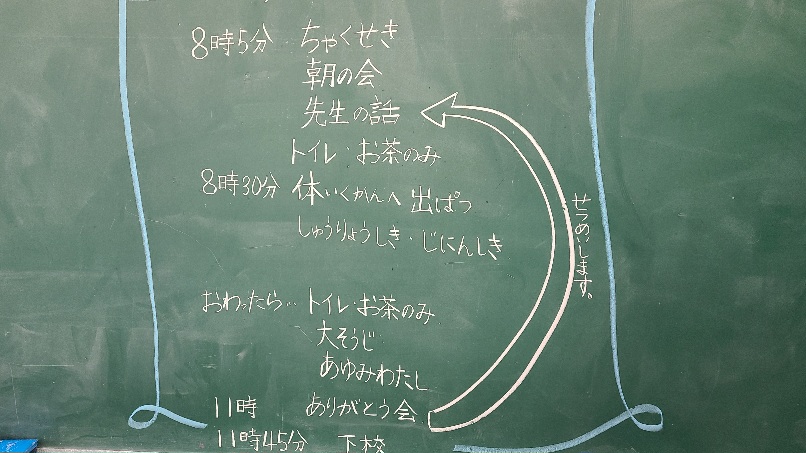 8時5分 ちゃくせき
朝の会
先生の話
トイレ・お茶のみ
8時30分 体いくかんへ 出ぱつ
しゅうりょうしき・じにんしき
せつめいします。
おわったら… トイレ・お茶のみ
大そうじ
あゆみわたし
11時 ありがとう会
11時45分 下校